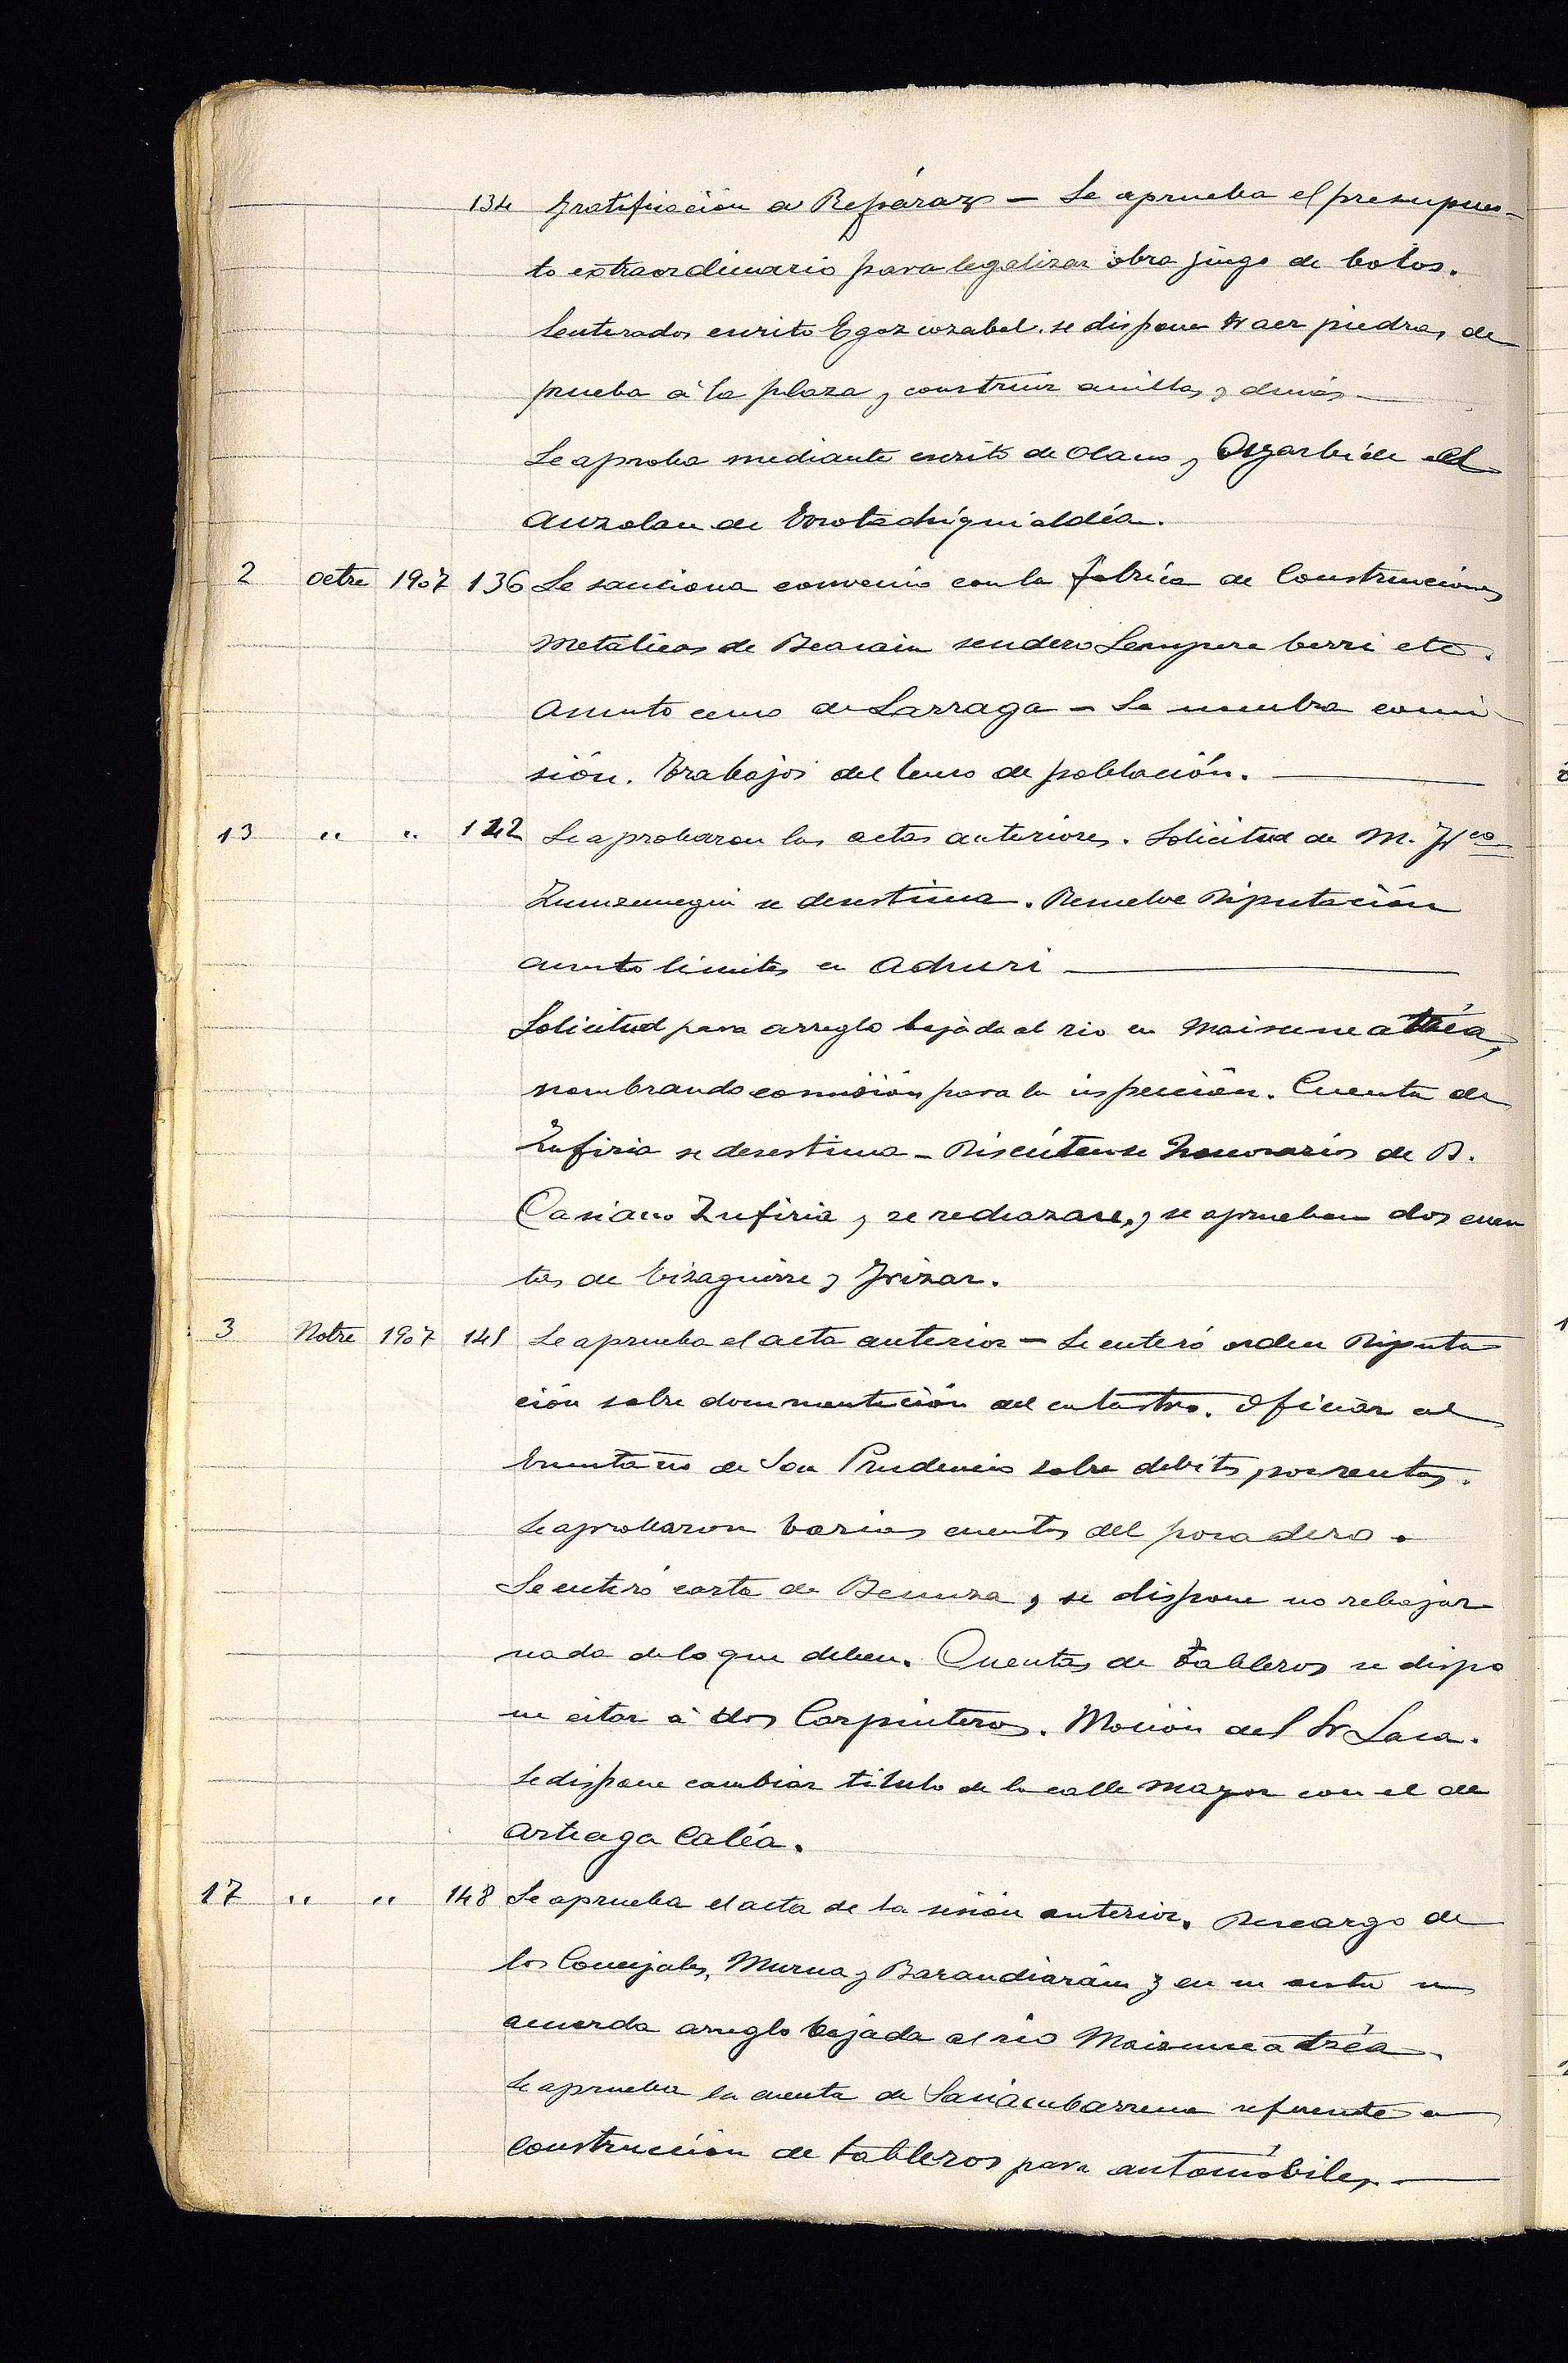 134 Gratificación a Repáraz — Se aprueba el presupues-
to extraordinario para legalizar obra juego de bolos.
Senterados escrito Egozcozabal. se dispone traer piedras de
prueba á la plaza y construir anillas y demás —
Se aproba mediante escrito de Olano y Oyarbide el
Auzolan de Errotachiquialdéa.
2 Octre 1907 136 Se sanciona convenio con la fabrica de Construcciones
Metálicas de Beasain sendero Sempere berri etc.
Asunto censo de Larraga — Se nombra comi-
sión. Trabajos del Censo de población. —
13 " " 142 Se aprobaron las actas anteriores. Solicitud de M. Fco
Zunzunegui se desestima. Resuelve Diputación
asunto limites en Aduri —
Solicitud para arreglo bajada al rio en Maisuneatzéa,
nombrando comisión para la inspección. Cuenta de
Zufiria se desestima — Discútense honorarios de D.
Casiano Zufiria y se rechazase, y se aprueban dos cuen
tas de Eizaguirre y Irizar.
3 Nbre 1907 145 Se aprueba el acta anterior — Se enteró orden Diputa
ción sobre documentación del catastro. Oficiar al
de San Prudencio sobre debitos por rentas.
Se aprobaron varias cuentas del posadero.
Se enteró carta de Benuza, se dispone no rebajar
nada de lo que deben. Cuentas de tableros se dispo
ne citar á dos Carpinteros. Moción del Sr Lasa.
Se dispone cambiar titulo de la calle mayor con el de
Arteaga Caléa.
17 " " 148 Se aprueba el acta de la sesión anterior. Descargo de
los Concejales, Murua y Barandiarán y en su vista se
acuerda arreglo bajada al rio Maisuneatzéa.
Se aprueba la cuenta de Sasiacubarrena referente a
construcción de tableros para automóbiles —